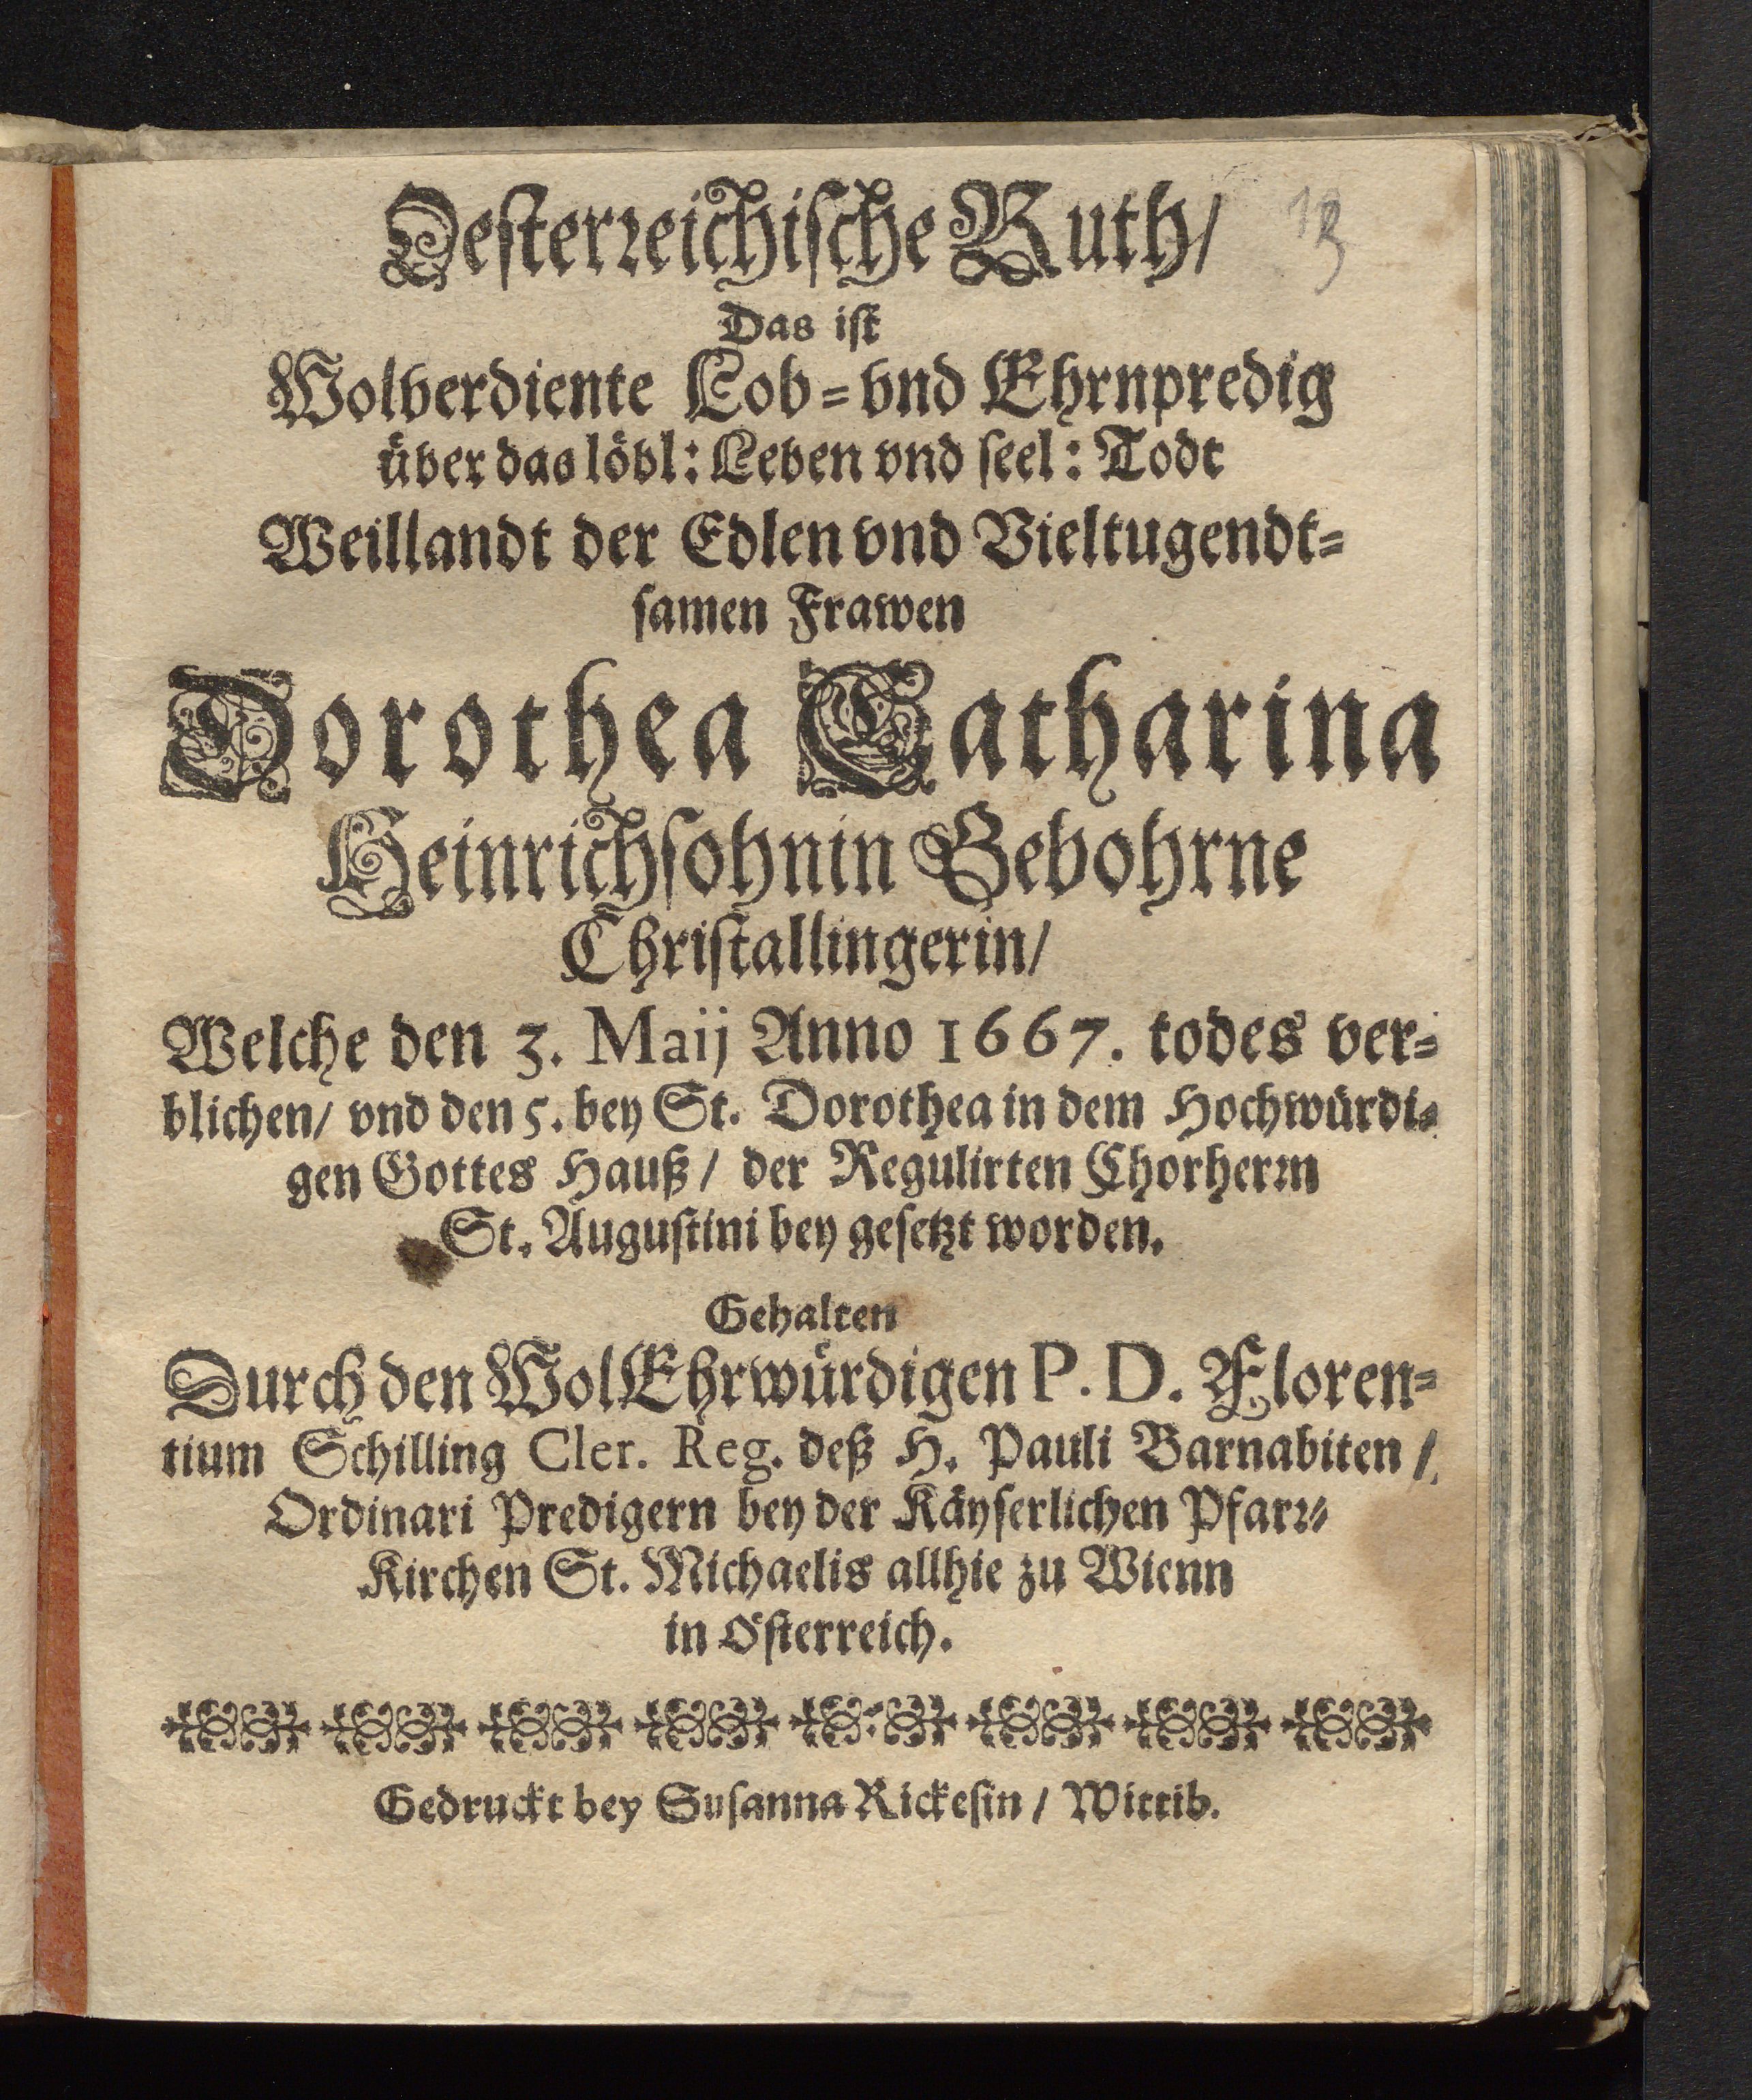 Oesterreichische Ruth/
Das ist
Wolverdiente Lob= vnd Ehrnpredig
über das löbl: Leben vnd seel: Todt
Weillandt der Edlen vnd Vieltugendt=
samen Frawen
Dorothea Catharina
Heinrichsohnin Gebohrne
Christallingerin/
Welche den 3. Maij Anno 1667. todes ver=
blichen/ vnd den 5. bey St. Dorothea in dem Hochwürdi=
gen Gottes Hauß/ der Regulirten Chorherrn
St. Augustini bey gesetzt worden.
Gehalten
Durch den WolEhrwürdigen P. D. Floren=
tium Schilling Cler. Reg. deß H. Pauli Barnabiten/
Ordinari Predigern bey der Käyserlichen Pfarr=
Kirchen St. Michaelis allhie zu Wienn
in Österreich.
Gedruckt bey Susanna Rickesin/ Wittib.